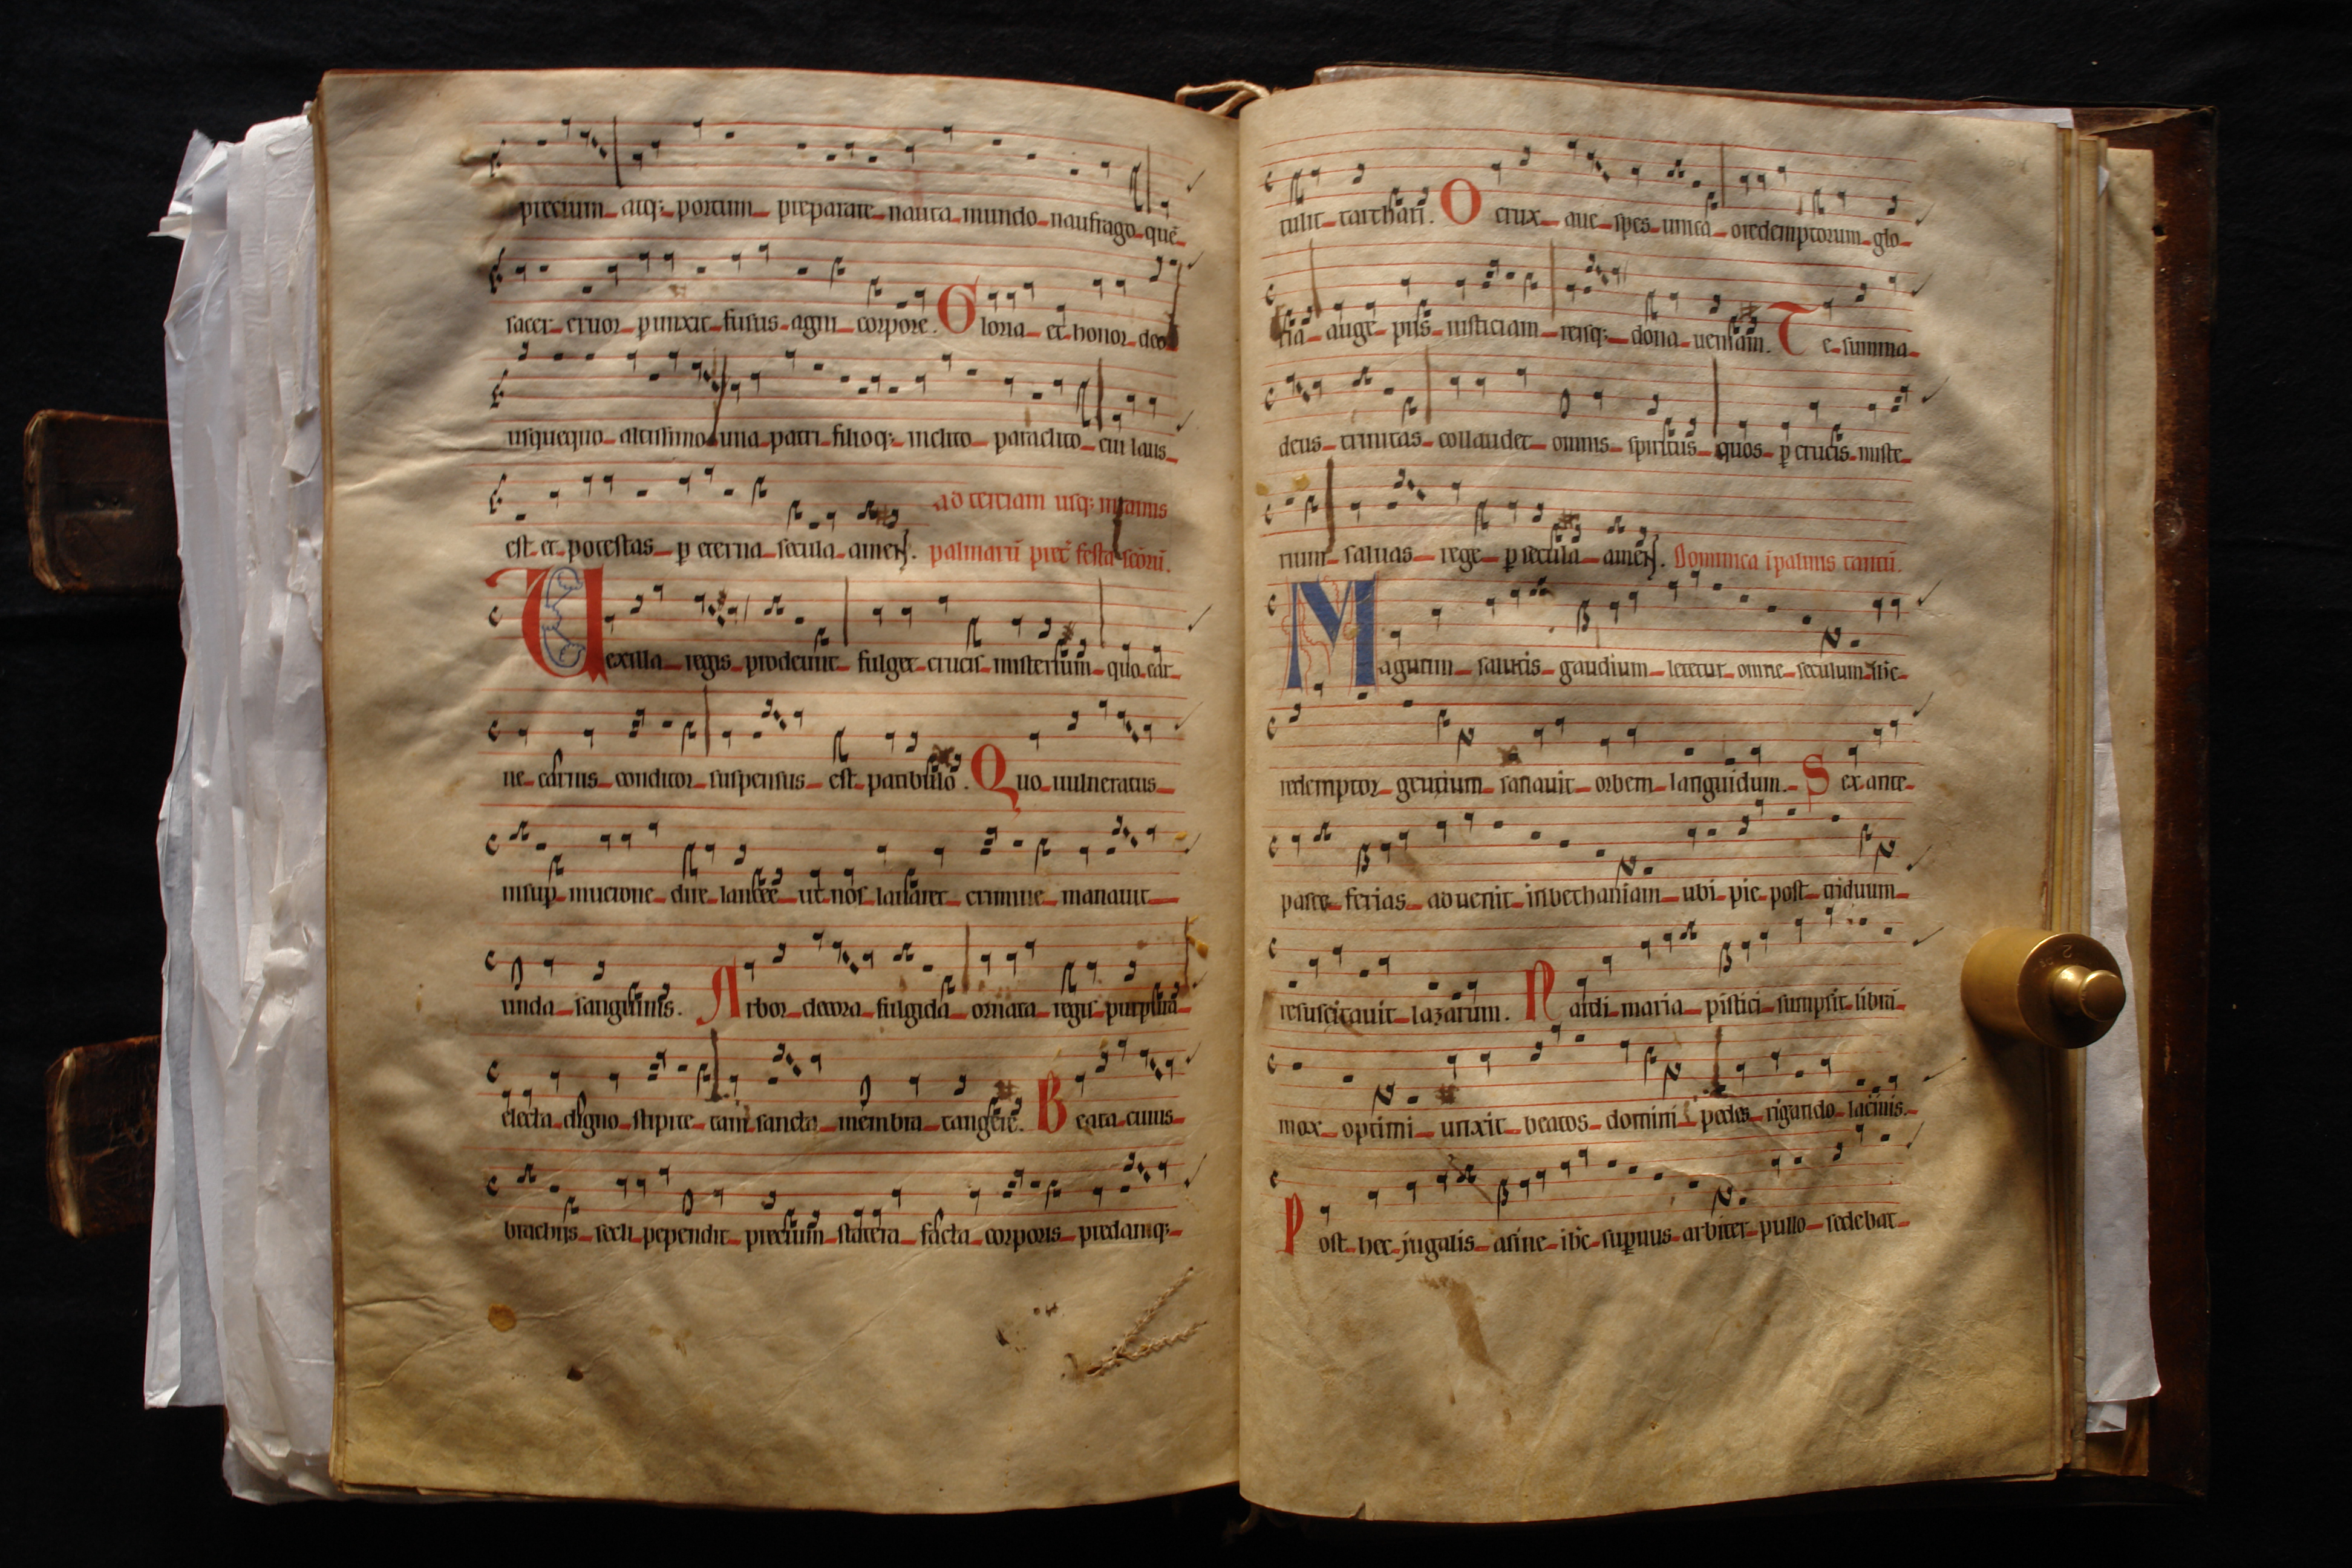 precium atq; portum preparare nauta mundo naufrago quē
sacer cruor ꝑunxit fusus agni corpore. Gloria et honor deo
usquequo altissimo una patri filioq; inclito paraclito cui laus
est et potestas ꝑ eterna secula amen. ad terciam usq; in ramis
palmarū pret̄ festa scōrū.
Vexilla regis prodeunt fulget crucis misterium quo car
ne carnis conditor suspensus est patibulo. Quo uulneratus
insuꝑ mucrone dire lancee ut nos lauaret crimine manauit
unda sanguinis. Arbor decora fulgida ornata regis purpura
electa digno stipite tam sancta membra tangere. Beata cuius
brachijs secli pependit precium statera facta corporis predamq;
tulit tarthari. O crux aue spes unica o redemptorum glo
ria auge piis iusticiam reisq; dona ueniam. Te summa
deus trinitas collaudet omnis spiritus quos ꝑ crucis miste
rium saluas rege ꝑ secula amen. Dominica ī palmis tantū.
Magnum salutis gaudium letetur omne seculum ihc
redemptor gentium sanauit orbem languidum. Sex ante
pasce ferias aduenit in bethaniam ubi pie post triduum
resuscitauit lazarum. Nardi maria pistici sumpsit librā
mox optimi unxit beatos domini pedes rigando lacrimis.
Post hec jugalis asine ihc suꝑnus arbiter pullo sedebat